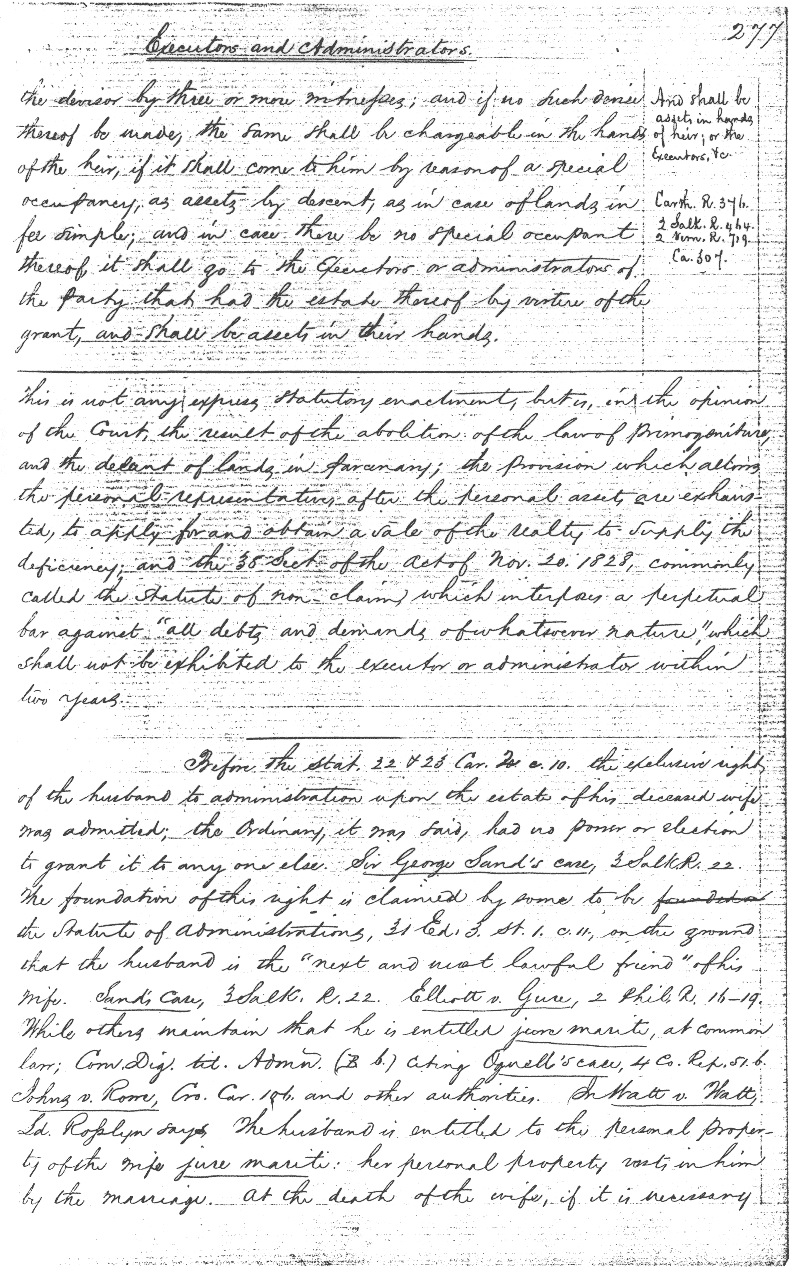 277
Executors and Administrators.
the devisor by three or more witnesses; and if no such devise
thereof be made, the same shall be chargeable in the hands
of the heir, if it shall come to him by reason of a special
occupancy, as assets by descent, as in case of lands in
fee simple; and in case there be no special occupant
thereof it shall go to the Executors or administrators of
the Party that had the estate thereof by virtue of the
grant, and shall be assets in their hands.
And shall be
assets in hands
of heir; or the
Executors, &c.
Carth. R. 376.
2 Salk. R. 464.
2 Vern. R. 719.
Ca. 307.
This is not any express statutory enactment, but is, in the opinion
of the Court, the result of the abolition of the law of primogeniture,
and the descent of lands in parcenary; the provision which allows
the personal representative, after the personal assets are exhaus-
ted, to apply for and obtain a sale of the realty to supply the
deficiency; and the 38 Sect. of the act of Nov. 20. 1828, commonly
called the statute of non-claim, which interposes a perpetual
bar against "all debts and demands of whatsoever nature", which
shall not be exhibited to the executor or administrator within
two years.
Before the stat. 22 & 23 Car. 2 c. 10. the exclusive right
of the husband to administration upon the estate of his deceased wife
was admitted; the Ordinary, it was said, had no power or election
to grant it to any one else. Sir George Sand's case, 3 Salk R. 22.
The foundation of this right is claimed by some to be founded on
the statute of Administrations, 31 Ed. 3. St. 1. c. 11, on the ground
that the husband is the "next and most lawful friend" of his
wife. Sand's case, 3 Salk. R. 22. Elliott v. Gurr, 2 Phil. R. 16-19.
While others maintain that he is entitled jure mariti, at common
law; Com. Dig. tit. Admn. (B 6.) citing Ognell's case, 4 Co. Rep. 51. b.
Johns v. Rowe, Cro. Car. 106. and other authorities. In Watt v. Watt,
Ld. Rosslyn says The husband is entitled to the personal proper-
ty of the wife jure mariti: her personal property vests in him
by the marriage. At the death of the wife, if it is necessary